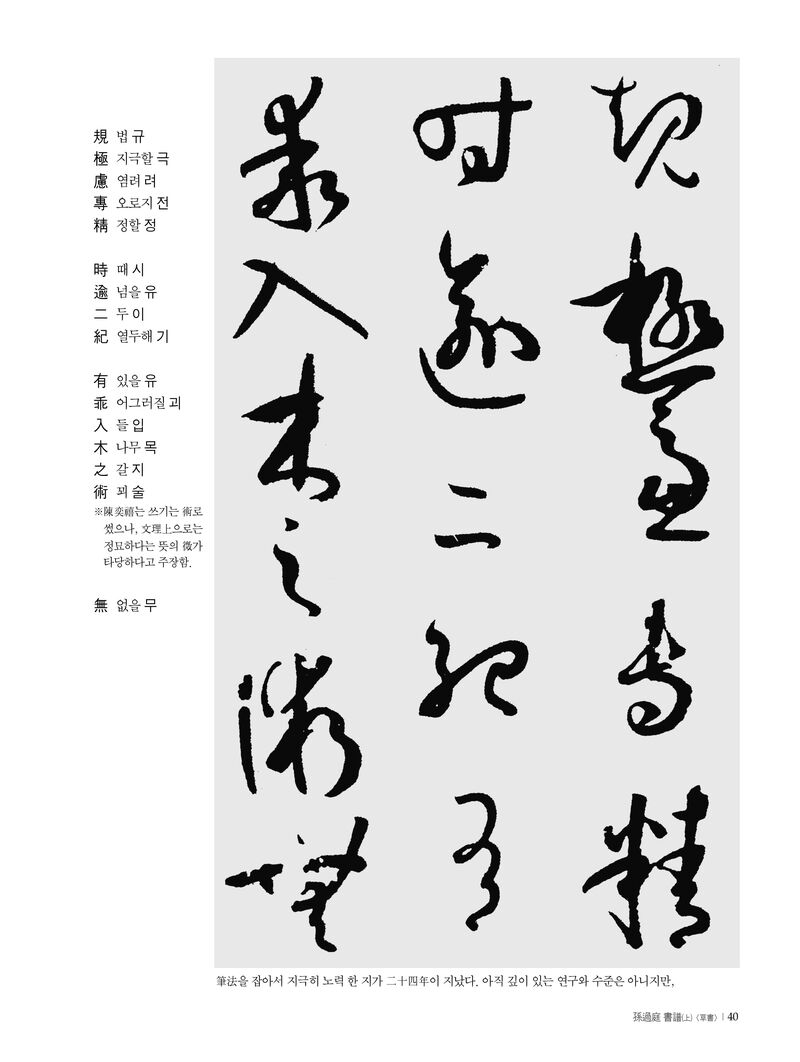 規極慮專精
時逾二紀有
乖入木之術無
規 법 규
極 지극할 극
慮 염려 려
專 오로지 전
精 정할 정
時 때 시
逾 넘을 유
二 두 이
紀 열두해 기
有 있을 유
乖 어그러질 괴
入 들 입
木 나무 목
之 갈 지
術 꾀 술
※陳奕禧는 쓰기는 術로
썼으나, 文理上으로는
정묘하다는 뜻의 微가
타당하다고 주장함.
無 없을 무
筆法을 잡아서 지극히 노력 한 지가 二十四年이 지났다. 아직 깊이 있는 연구와 수준은 아니지만,
孫過庭 書譜(上)〈草書〉 | 40